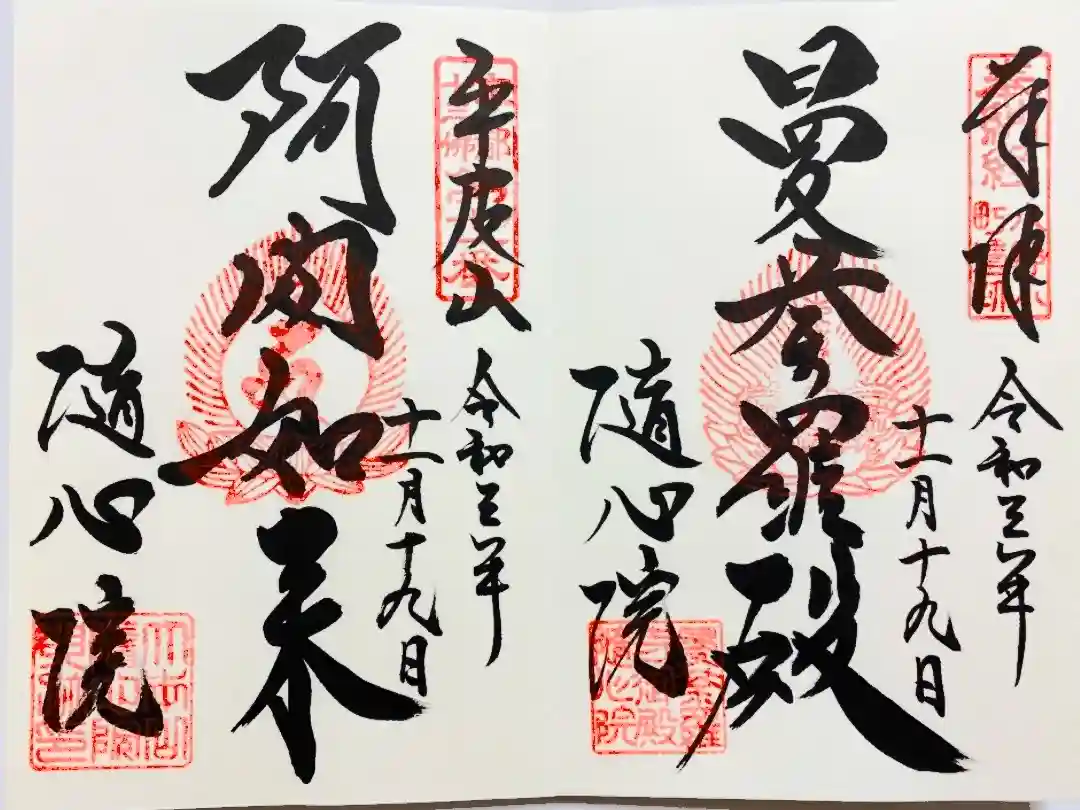 奉拝
令和三年
十一月十九日
曼荼羅殿
隨心院
牛皮山
令和三年
十一月十九日
阿閦如来
隨心院